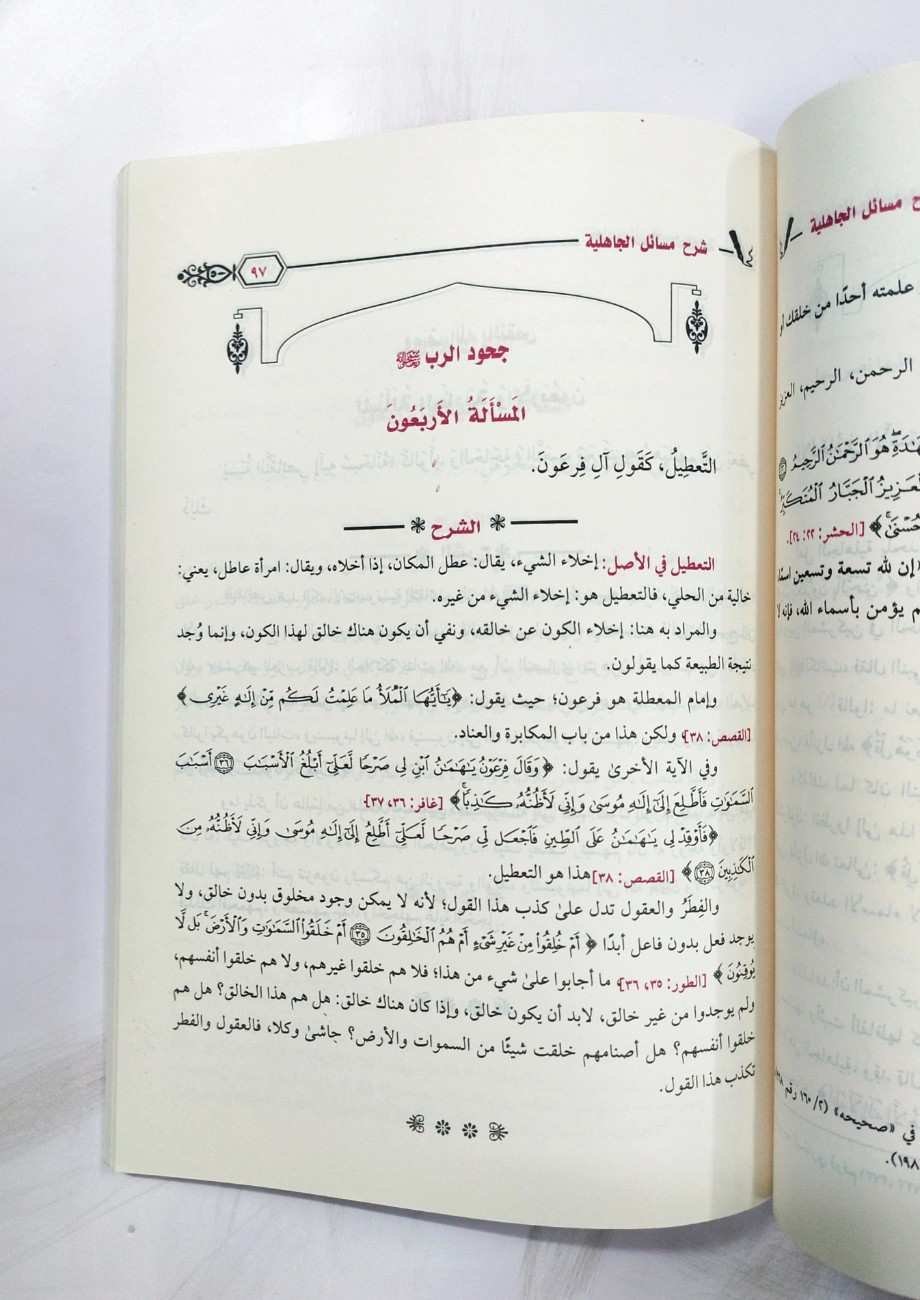 شرح مسائل الجاهلية
٩٧
جحود الرب ﷻ
المَسْأَلَةُ الأَرْبَعُونَ
التَّعطِيلُ، كَقَولِ آلِ فِرعَونَ.
الشرح
التعطيل في الأصل: إخلاء الشيء، يقال: عطل المكان، إذا أخلاه، ويقال: امرأة عاطل، يعني:
خالية من الحلي، فالتعطيل هو: إخلاء الشيء من غيره.
والمراد به هنا: إخلاء الكون عن خالقه، ونفي أن يكون هناك خالق لهذا الكون، وإنما وُجد
نتيجة الطبيعة كما يقولون.
وإمام المعطلة هو فرعون؛ حيث يقول: ﴿يَٰٓأَيُّهَا ٱلْمَلَأُ مَا عَلِمْتُ لَكُم مِّنْ إِلَٰهٍ غَيْرِى﴾
[القصص: ٣٨]، ولكن هذا من باب المكابرة والعناد.
وفي الآية الأخرىٰ يقول: ﴿وَقَالَ فِرْعَوْنُ يَٰهَٰمَٰنُ ٱبْنِ لِى صَرْحًا لَّعَلِّىٓ أَبْلُغُ ٱلْأَسْبَٰبَ ۝٣٦ أَسْبَٰبَ
ٱلسَّمَٰوَٰتِ فَأَطَّلِعَ إِلَىٰٓ إِلَٰهِ مُوسَىٰ وَإِنِّى لَأَظُنُّهُۥ كَٰذِبًا ۚ﴾ [غافر: ٣٦، ٣٧]
﴿فَأَوْقِدْ لِى يَٰهَٰمَٰنُ عَلَى ٱلطِّينِ فَٱجْعَل لِّى صَرْحًا لَّعَلِّىٓ أَطَّلِعُ إِلَىٰٓ إِلَٰهِ مُوسَىٰ وَإِنِّى لَأَظُنُّهُۥ مِنَ
ٱلْكَٰذِبِينَ ۝٣٨﴾ [القصص: ٣٨] هذا هو التعطيل.
والفِطَرُ والعقول تدل علىٰ كذب هذا القول؛ لأنه لا يمكن وجود مخلوق بدون خالق، ولا
يوجد فعل بدون فاعل أبدًا ﴿أَمْ خُلِقُوا۟ مِنْ غَيْرِ شَىْءٍ أَمْ هُمُ ٱلْخَٰلِقُونَ ۝٣٥ أَمْ خَلَقُوا۟ ٱلسَّمَٰوَٰتِ وَٱلْأَرْضَ ۚ بَل لَّا
يُوقِنُونَ﴾ [الطور: ٣٥، ٣٦]، ما أجابوا علىٰ شيء من هذا؛ فلا هم خلقوا غيرهم، ولا هم خلقوا أنفسهم،
ولم يوجدوا من غير خالق، لابد أن يكون خالق، وإذا كان هناك خالق: هل هم هذا الخالق؟ هل هم
خلقوا أنفسهم؟ هل أصنامهم خلقت شيئًا من السموات والأرض؟ حاشىٰ وكلا، فالعقول والفطر
تكذب هذا القول.
ح مسائل الجاهلية
علمته أحدًا من خلقك
الرحمن، الرحيم، العزيز
هُوَ ٱلرَّحْمَٰنُ ٱلرَّحِيمُ
ٱلْعَزِيزُ ٱلْجَبَّارُ ٱلْمُتَكَبِّرُ
[الحشر: ٢٢: ٢٤].
«إن لله تسعة وتسعين
م يؤمن بأسماء الله، فإنه لا
في «صحيحه» (١٦٠/٢ رقم